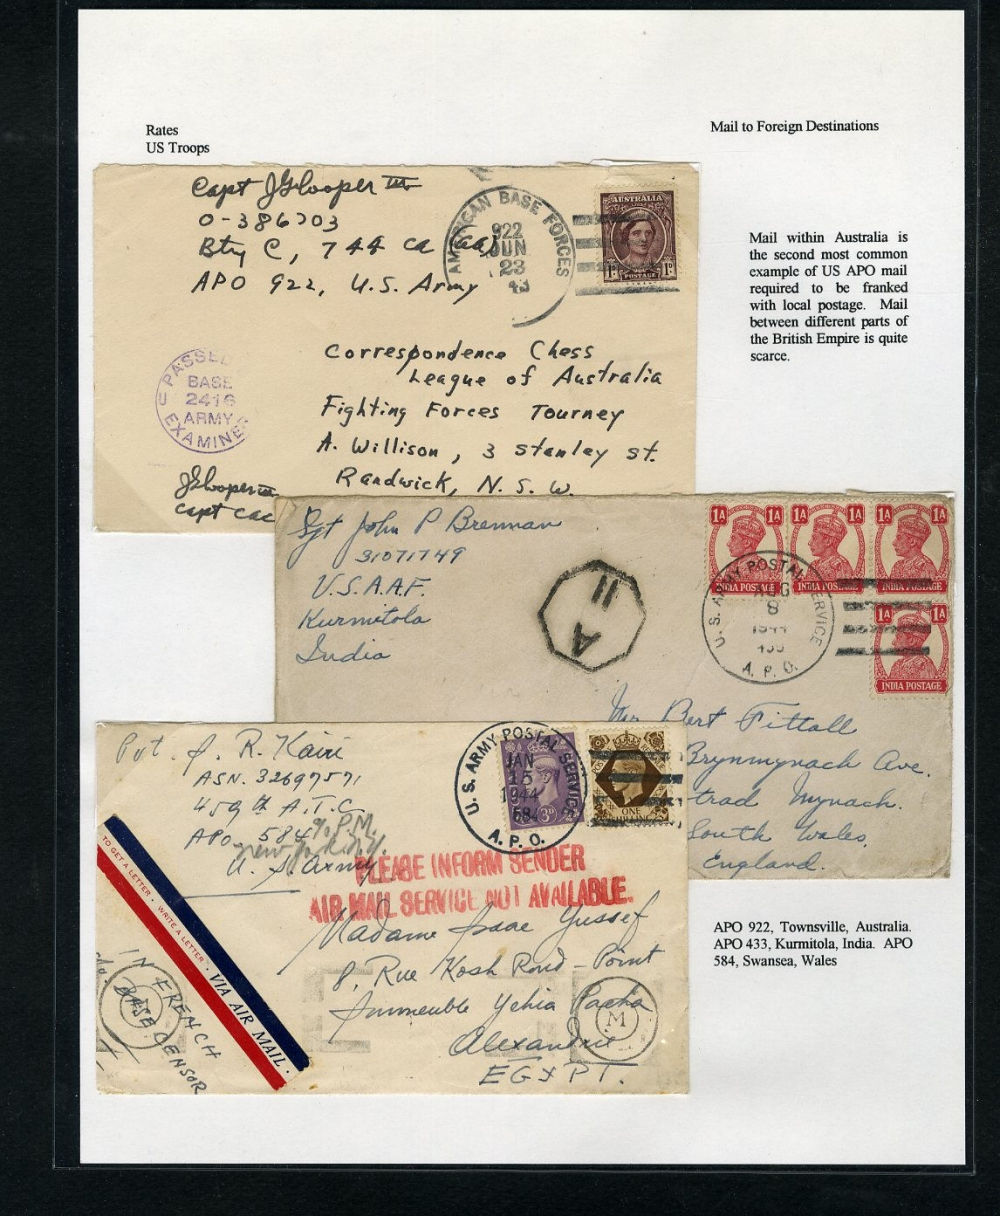 Rates
US Troops
Mail to Foreign Destinations
Capt JG Cooper III
O-386703
Bty C, 744 CA (AA)
APO 922, U.S. Army
AMERICAN BASE FORCES
922
JUN
23
43
AUSTRALIA
1D
POSTAGE
1D
Mail within Australia is
the second most common
example of US APO mail
required to be franked
with local postage. Mail
between different parts of
the British Empire is quite
scarce.
PASSED
BASE
2416
ARMY
EXAMINER
Correspondence Chess
League of Australia
Fighting Forces Tourney
A. Willison, 3 Stanley St.
Randwick, N.S.W.
JG Cooper III
Capt CAC
Sgt John P Brennan
31071749
U.S.A.A.F.
Kurmitola
India
A
II
1A 1A
INDIA POSTAGE
1A 1A
INDIA POSTAGE
1A 1A
INDIA POSTAGE
1A 1A
INDIA POSTAGE
U. S. ARMY POSTAL SERVICE
AUG
8
1944
433
A. P. O.
Bert Fittall
Brynmynach Ave.
trad Mynach.
South Wales,
England.
Pvt. J. R. Kairi
ASN. 32697571
459th A.T.C.
APO 584 % P.M.
New York N.Y.
U. S. Army
U. S. ARMY POSTAL SERVICE
JAN
15
1944
584
A. P. O.
3D
ONE
PLEASE INFORM SENDER
AIR MAIL SERVICE NOT AVAILABLE.
TO GET A LETTER · WRITE A LETTER ·
VIA AIR MAIL ·
Madame Isaac Yussef
8, Rue Kosh Rond-Point
Immeuble Yehia Pacha
Alexandrie
EGYPT.
IN FRENCH
BASE CENSOR
M
M
APO 922, Townsville, Australia.
APO 433, Kurmitola, India. APO
584, Swansea, Wales